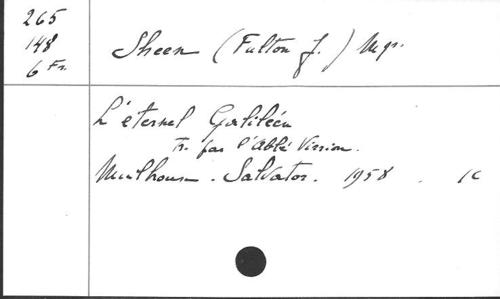 265
148
6 Fr.
Sheen (Fulton J.) Mgr.
L'éternel Galiléen
Tr. par l'Abbé Virrion.
Mulhouse. Salvator. 1958. 1C